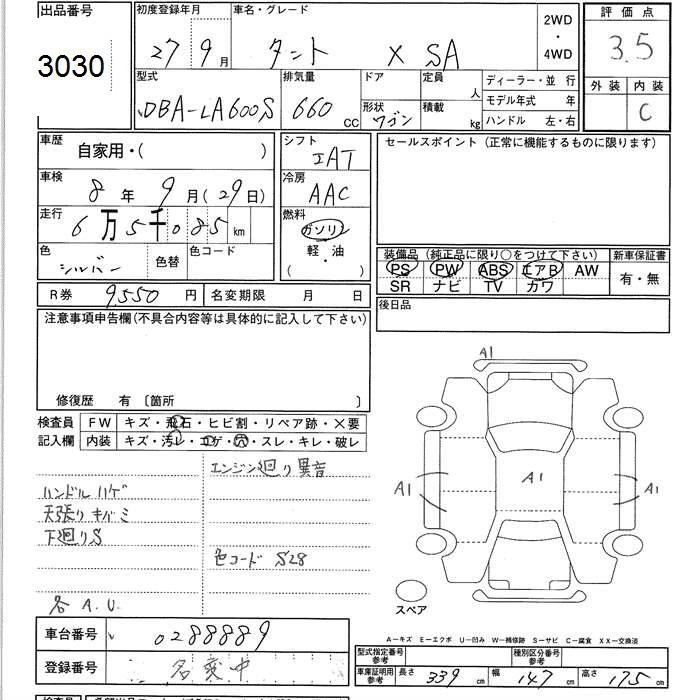 出品番号 初度登録年月 車名・グレード 2WD・4WD 評価点
3030 27 9月 タント X SA 3.5
型式 排気量 ドア 定員 人 ディーラー・並 行 外装 内装
DBA-LA600S 660 CC 形状 ワゴン 積載 kg モデル年式 年 C
ハンドル 左・右
車歴 自家用・( ) シフト IAT セールスポイント (正常に機能するものに限ります)
車検 8年 9月(29日) 冷房 AAC
走行 6万5千085km 燃料 ガソリン
軽・油
( )
色 シルバー 色替 色コード 装備品 (純正品に限り○をつけて下さい) 新車保証書
PS PW ABS エアB AW 有・無
SR ナビ TV カワ
R券 9,550円 名変期限 月 日 後日品
注意事項申告欄(不具合内容等は具体的に記入して下さい)
修復歴 有 〔箇所 〕
検査員 FW キズ・飛石・ヒビ割・リペア跡・×要
記入欄 内装 キズ・汚レ・コゲ・穴・スレ・キレ・破レ
エンジン廻り異音
ハンドルハゲ
天張りキバミ
下廻りS
色コード S28
各 A.U.
A1
A1 A1 A1
スペア
車台番号 0288889
登録番号 名変中
A-キズ E-エクボ U-凹み W-補修跡 S-サビ C-腐食 XX-交換済
型式指定番号 参考 種別区分番号 参考
車庫証明用 参考 長さ 339cm 幅 147cm 高さ 175cm